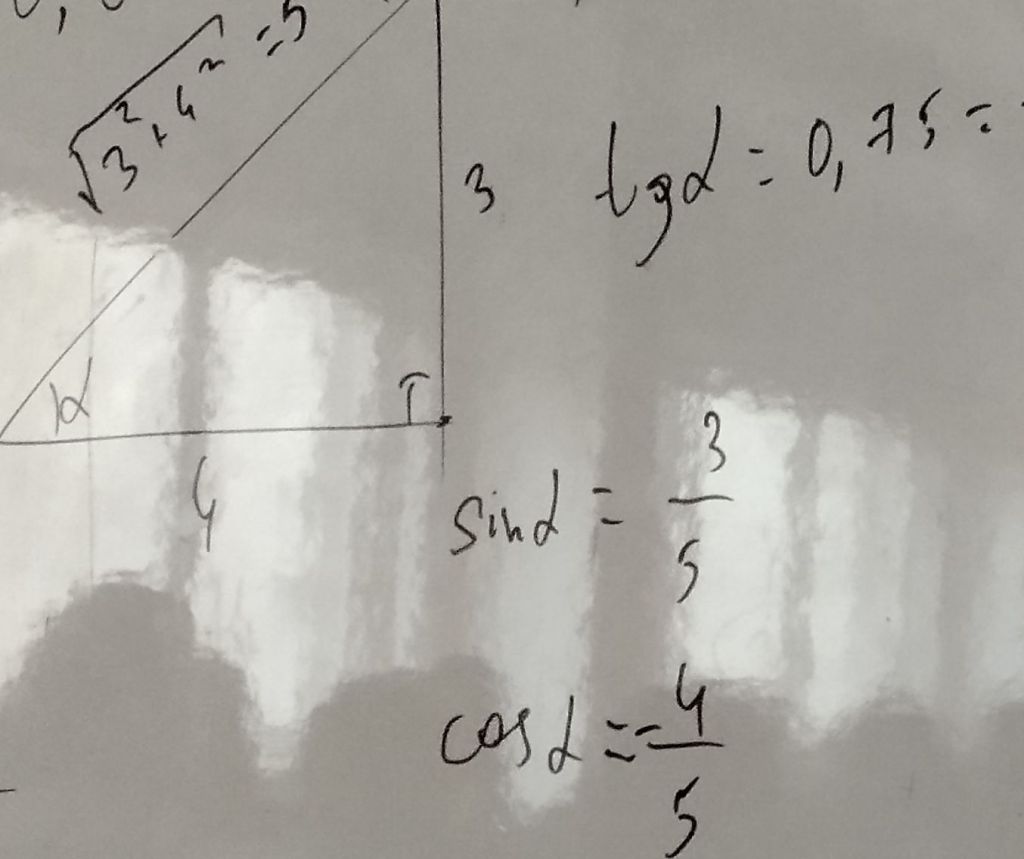 √3²+4² = 5
3
tgα = 0,75 =
α
4
sinα = 3/5
cosα = -4/5